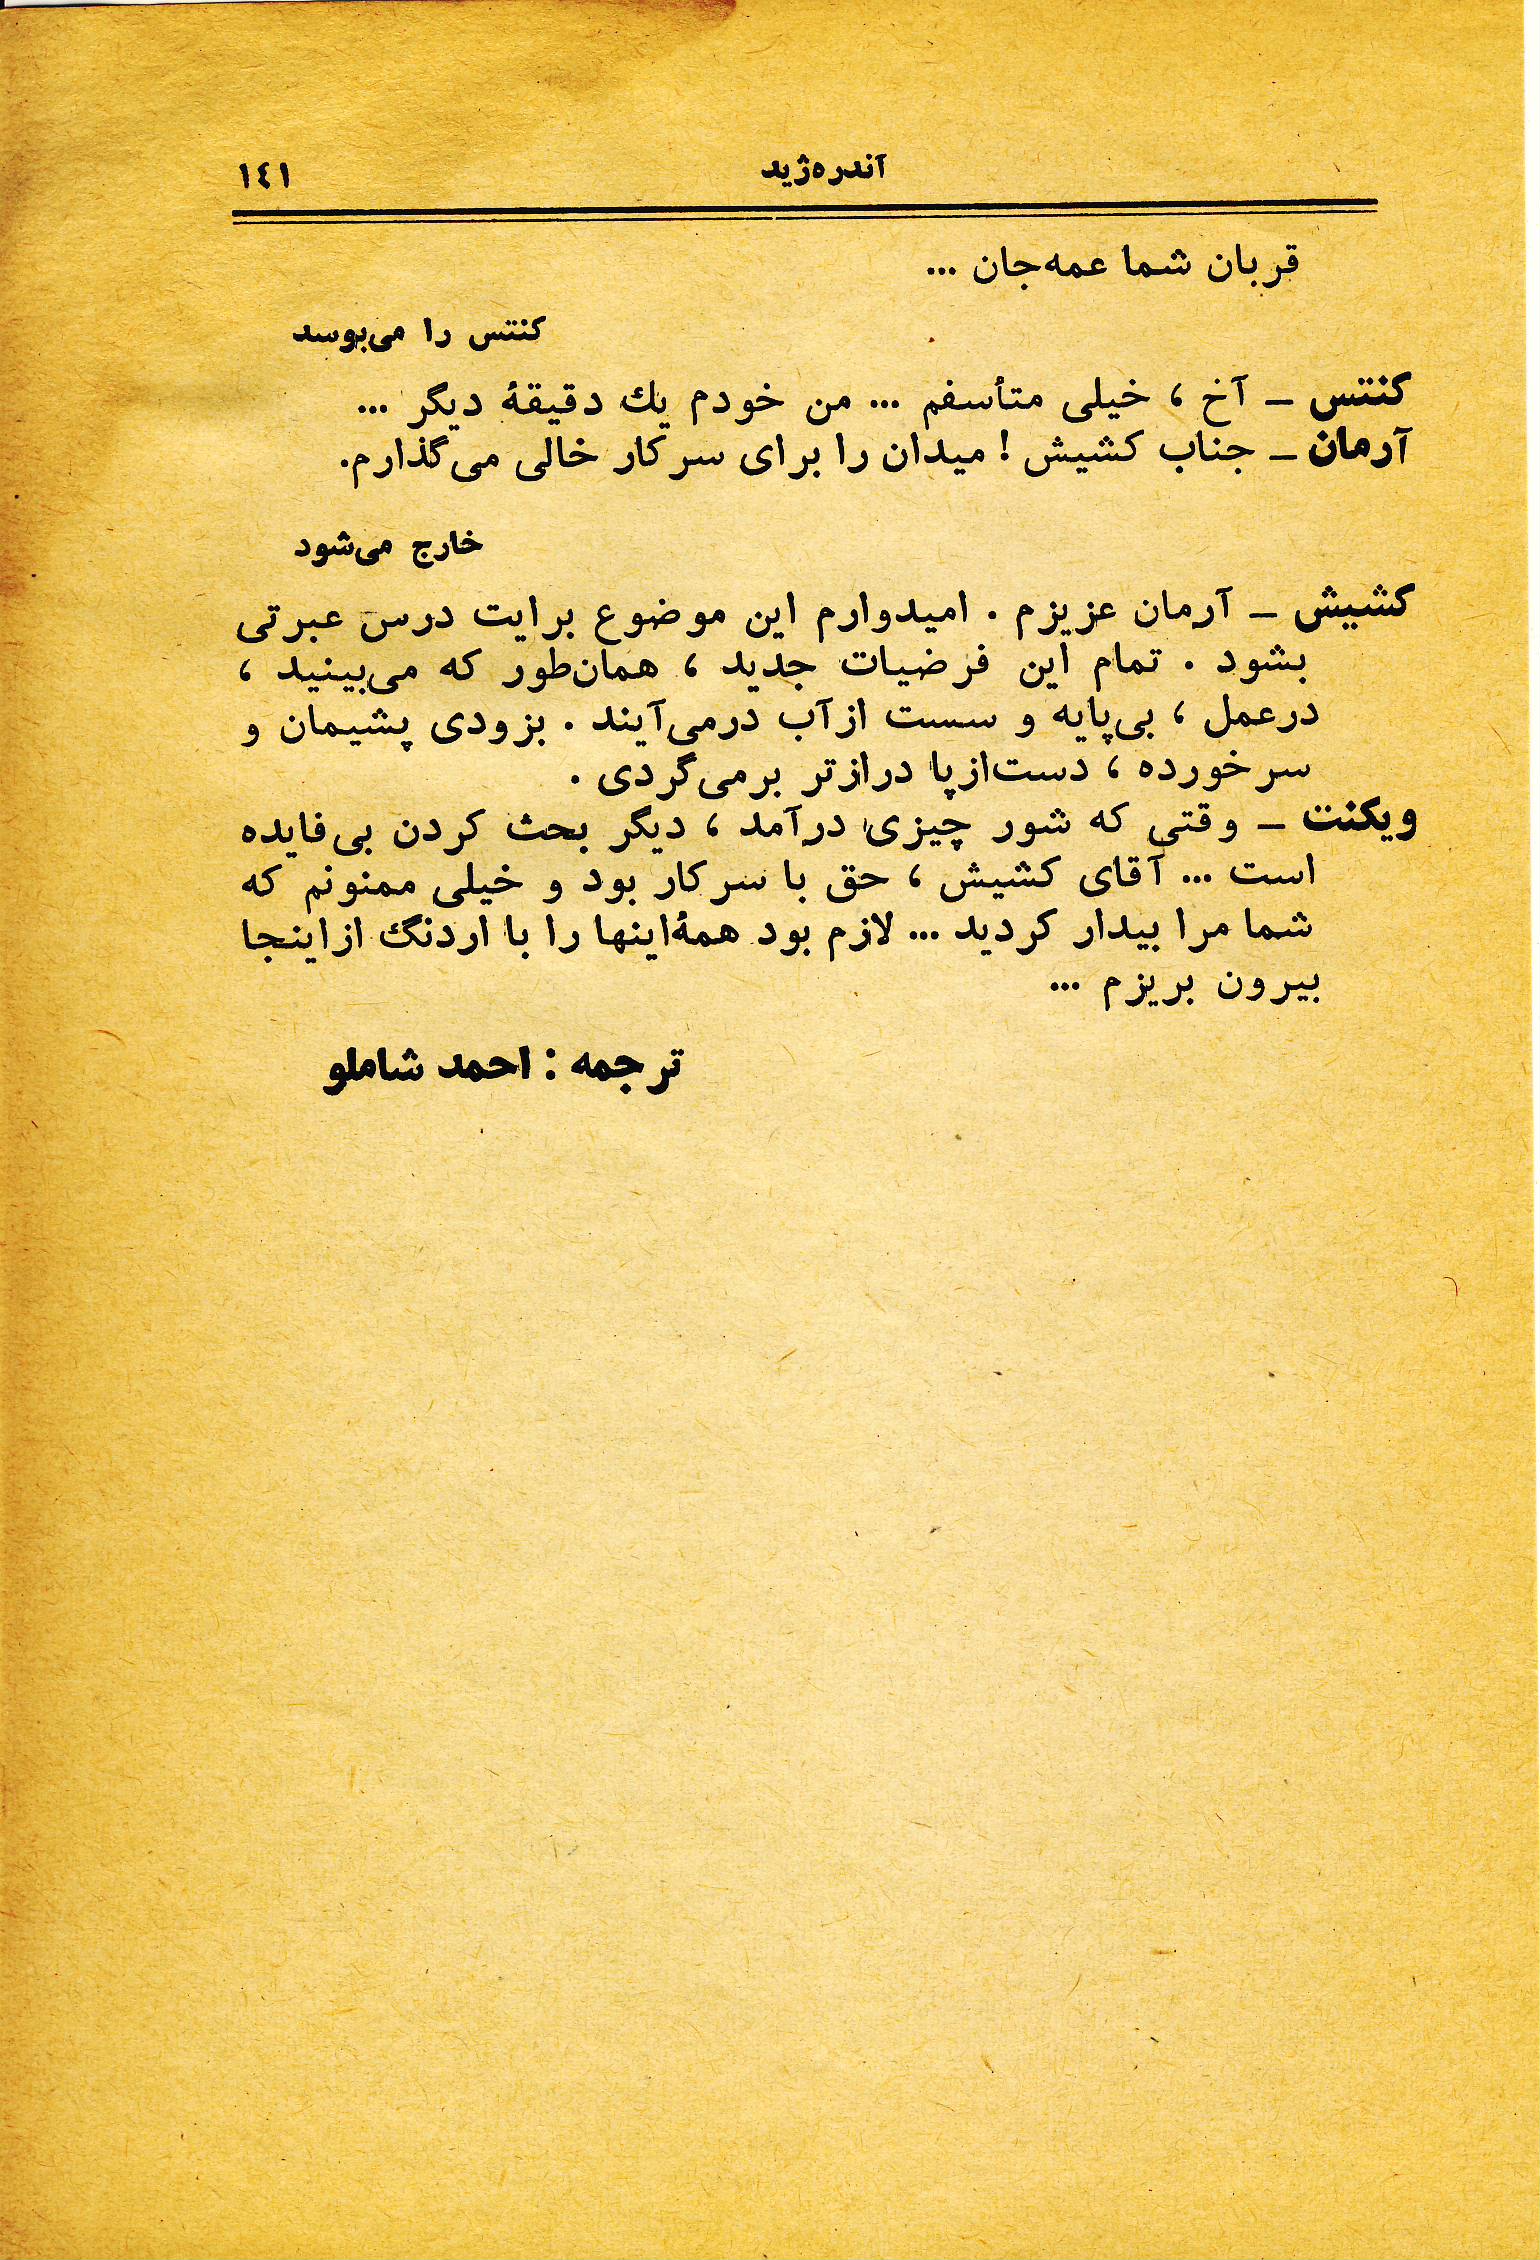 آندره‌ژید ۱۴۱
قربان شما عمه‌جان ...
کنتس را می‌بوسد
کنتس ــ آخ ، خیلی متأسفم ... من خودم یك دقیقهٔ دیگر ...
آرمان ــ جناب کشیش ! میدان را برای سرکار خالی می‌گذارم.
خارج می‌شود
کشیش ــ آرمان عزیزم . امیدوارم این موضوع برایت درس عبرتی
بشود . تمام این فرضیات جدید ، همان‌طور که می‌بینید ،
درعمل ، بی‌پایه و سست ازآب درمی‌آیند . بزودی پشیمان و
سرخورده ، دست‌ازپا درازتر برمی‌گردی .
ویکنت ــ وقتی که شور چیزی درآمد ، دیگر بحث کردن بی‌فایده
است ... آقای کشیش ، حق با سرکار بود و خیلی ممنونم که
شما مرا بیدار کردید ... لازم بود همهٔ‌اینها را با اردنگ ازاینجا
بیرون بریزم ...
ترجمه : احمد شاملو